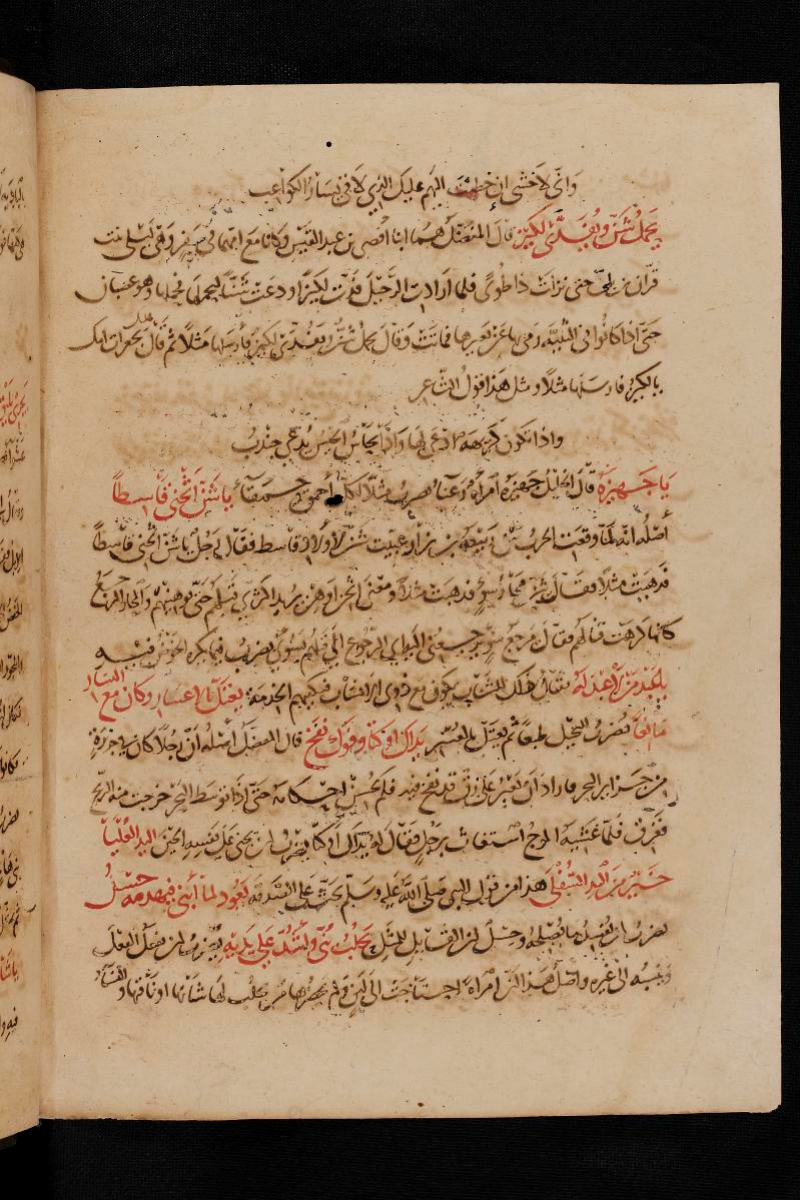 واني لاخشى ان خطبت اليهم عليك الذي لاقى يسار الكواعب
يحمل شن ويفدى لكيز قال المفضل هما ابنا افصى بن عبد القيس وكانا مع امهما في سفر وهي ليلى بنت
قران بن بلى حتى نزلت ذا طوى فلما ارادت الرحيل فدت لكيزا ودعت شنا ليحملها فحملها وهو غضبان
حتى اذا كانوا في الثنية رمى بها عن بعيرها فماتت وقال يحمل شن ويفدى لكيز فارسلها مثلا ثم قال عليك بجعرات امك
يا لكيز فارسلها مثلا ومثل هذا قول الشاعر
واذا تكون كريهة ادعى لها واذا يحاس الحيس يدعى جندب
يا جهيزة قال الخليل جهيزة امرأة رعناء يضرب مثلا لكل أحمق وحمقاء يا شن اثخني قاسطا
أصله انه لما وقعت الحرب بين ربيعة بن نزار عبيت شن لاولاد قاسط فقال رجل يا شن اثخني قاسطا
فذهبت مثلا فقال محار سوء فذهبت مثلا ومعنى اثخن اوهن يريد اكثري قتلهم حتى توهنيهم والمحار المرجع
كانها كرهت قتالهم فقال مرجع سوء ترجعني اليه اي الرجوع الى قتلهم يسوني يضرب فيما يكره الخوض فيه
يقال ذلك الشاب يكون مع ذوي الاسنان فيكفيهم الخدمة يعتل بالاعسار وكان في اليسار
مانعا يضرب للبخيل طبعا ثم يعتل بالعسر يداك اوكتا وفوك نفخ قال المفضل أصله ان رجلا كان في جزيرة
من جزاير البحر فاراد ان يعبر على زق قد نفخ فيه فلم يحسن احكامه حتى اذا توسط البحر خرجت منه الريح
فغرق فلما غشيه الموج استغاث برجل فقال له يداك اوكتا يضرب لمن يجني على نفسه الحين اليد العليا
خير من اليد السفلى هذا من قول النبي صلى الله عليه وسلم يحث على الصدقة يعود لما أبني فيهدمه حسل
يضرب لمن يفسد ما يصلحه وحسل ابن القايل للمثل يحلب بني واشد على يديه يضرب لمن يفعل الفعل
وينسبه الى غيره واصل هذا ان امرأة احتاجت الى لبن ولم يحضرها من يحلب لها شاتها او ناقتها والنساء